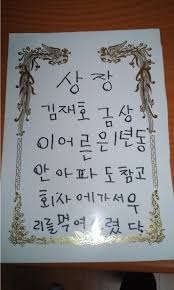 상장
김재호 금상
이어른은1년동
안아파도참고
회사에가서우
리를먹여살렸다